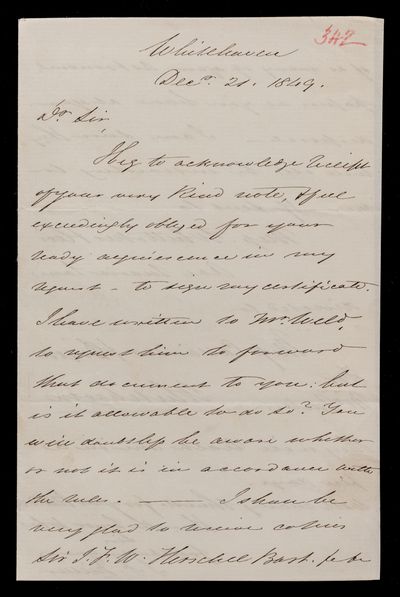 342
Whitehaven
Decr. 21. 1849.
Dr. Sir,
I beg to acknowledge receipt
of your very kind note, & feel
exceedingly obliged for your
ready acquiescence in my
request - to sign my certificate.
I have written to Mr. Weld,
to request him to forward
that document to you: but
is it allowable to do so? You
will doubtless be aware whether
or not it is in accordance with
the rules. —— I shall be
very glad to receive copies
Sir J. F. W. Herschel Bart. &c &c